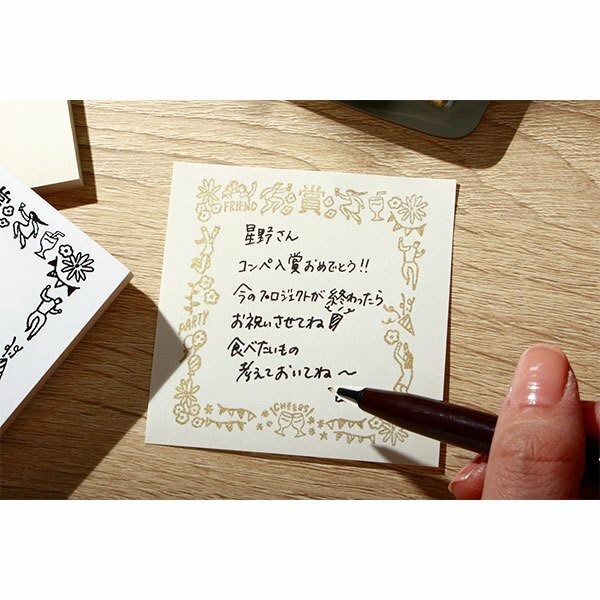 FRIEND
賞
星野さん
コンペ入賞おめでとう!!
今のプロジェクトが終わったら
お祝いさせてね
食べたいもの
考えておいてね〜
PARTY
CHEERS!
賞